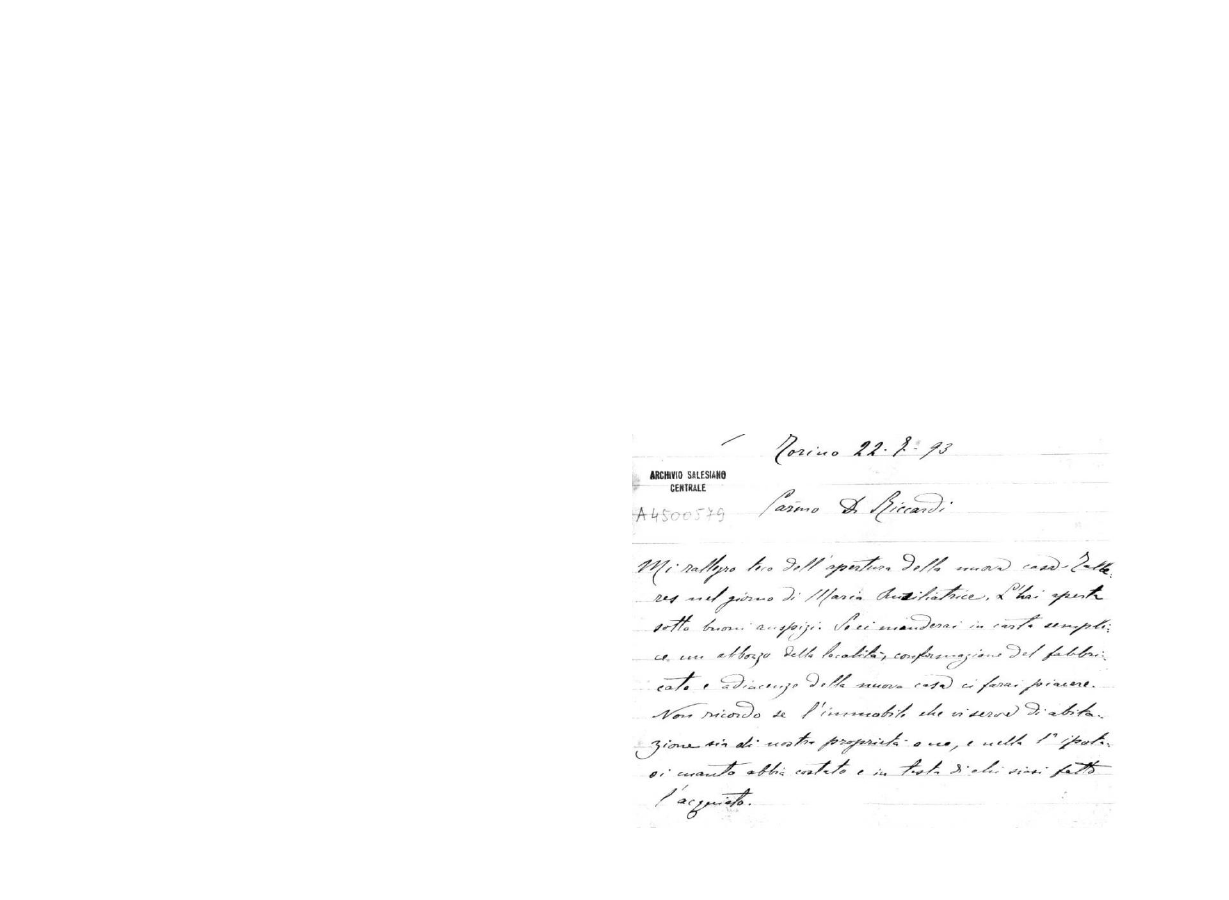 Torino 22. 7: 93
ARCHIVIO SALESIANO
CENTRALE
A4500579
Car̄mo D. Riccardi
Mi rallegro teco dell'apertura della nuova casa Talle-
res nel giorno di Maria Ausiliatrice. L'hai aperta
sotto buoni auspizi. Se ci manderai in carta sempli-
ce un abbozzo della località, conformazione del fabbri-
cato e adiacenze della nuova casa ci farai piacere.
Non ricordo se l'immobile che vi serve di abita-
zione sia di nostra proprietà o no, e nella 1ª ipote-
si quanto abbia costato e in testa di chi siasi fatto
l'acquisto.